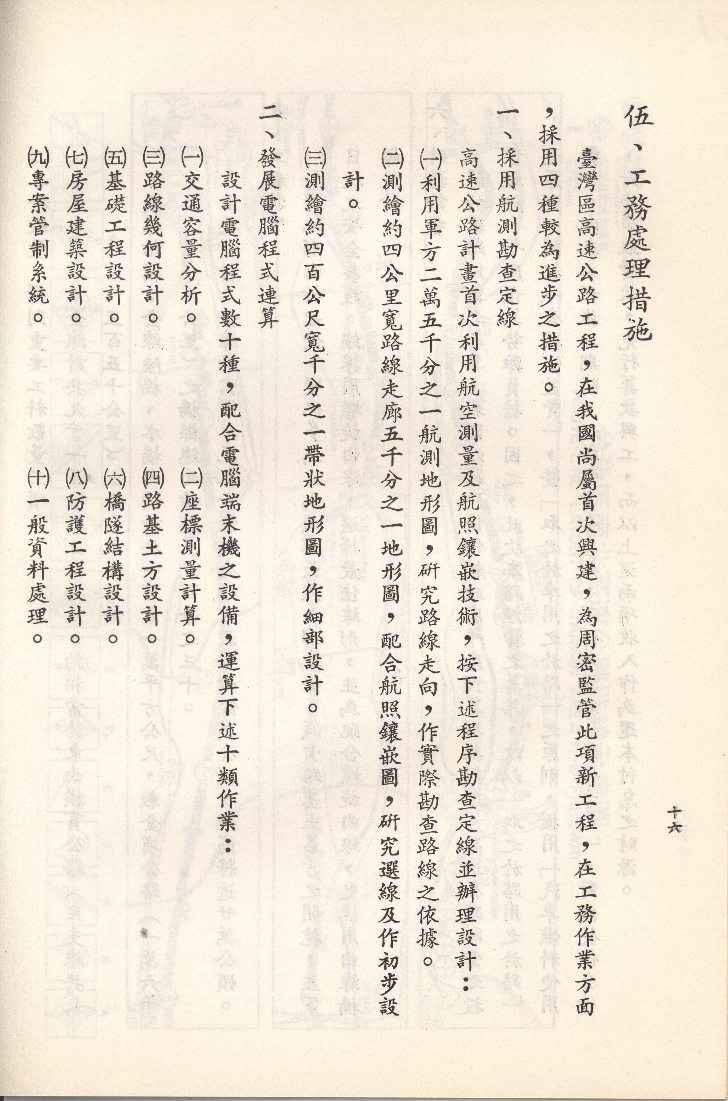 伍、工務處理措施
臺灣區高速公路工程，在我國尚屬首次興建，為周密監管此項新工程，在工務作業方面
，採用四種較為進步之措施。
一、採用航測勘查定線
高速公路計畫首次利用航空測量及航照鑲嵌技術，按下述程序勘查定線並辦理設計：
㈠利用軍方二萬五千分之一航測地形圖，研究路線走向，作實際勘查路線之依據。
㈡測繪約四公里寬路線走廊五千分之一地形圖，配合航照鑲嵌圖，研究選線及作初步設
計。
㈢測繪約四百公尺寬千分之一帶狀地形圖，作細部設計。
二、發展電腦程式連算
設計電腦程式數十種，配合電腦端末機之設備，運算下述十類作業：
㈠交通容量分析。　㈡座標測量計算。
㈢路線幾何設計。　㈣路基土方設計。
㈤基礎工程設計。　㈥橋隧結構設計。
㈦房屋建築設計。　㈧防護工程設計。
㈨專案管制系統。　㈩一般資料處理。
十六